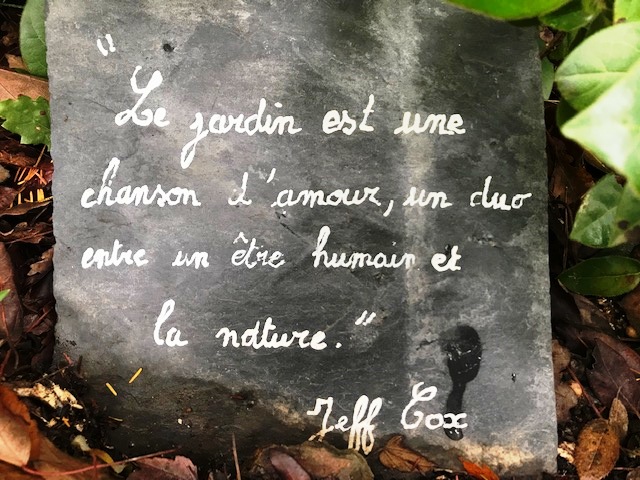 "Le jardin est une
chanson d'amour, un duo
entre un être humain et
la nature."
Jeff Cox